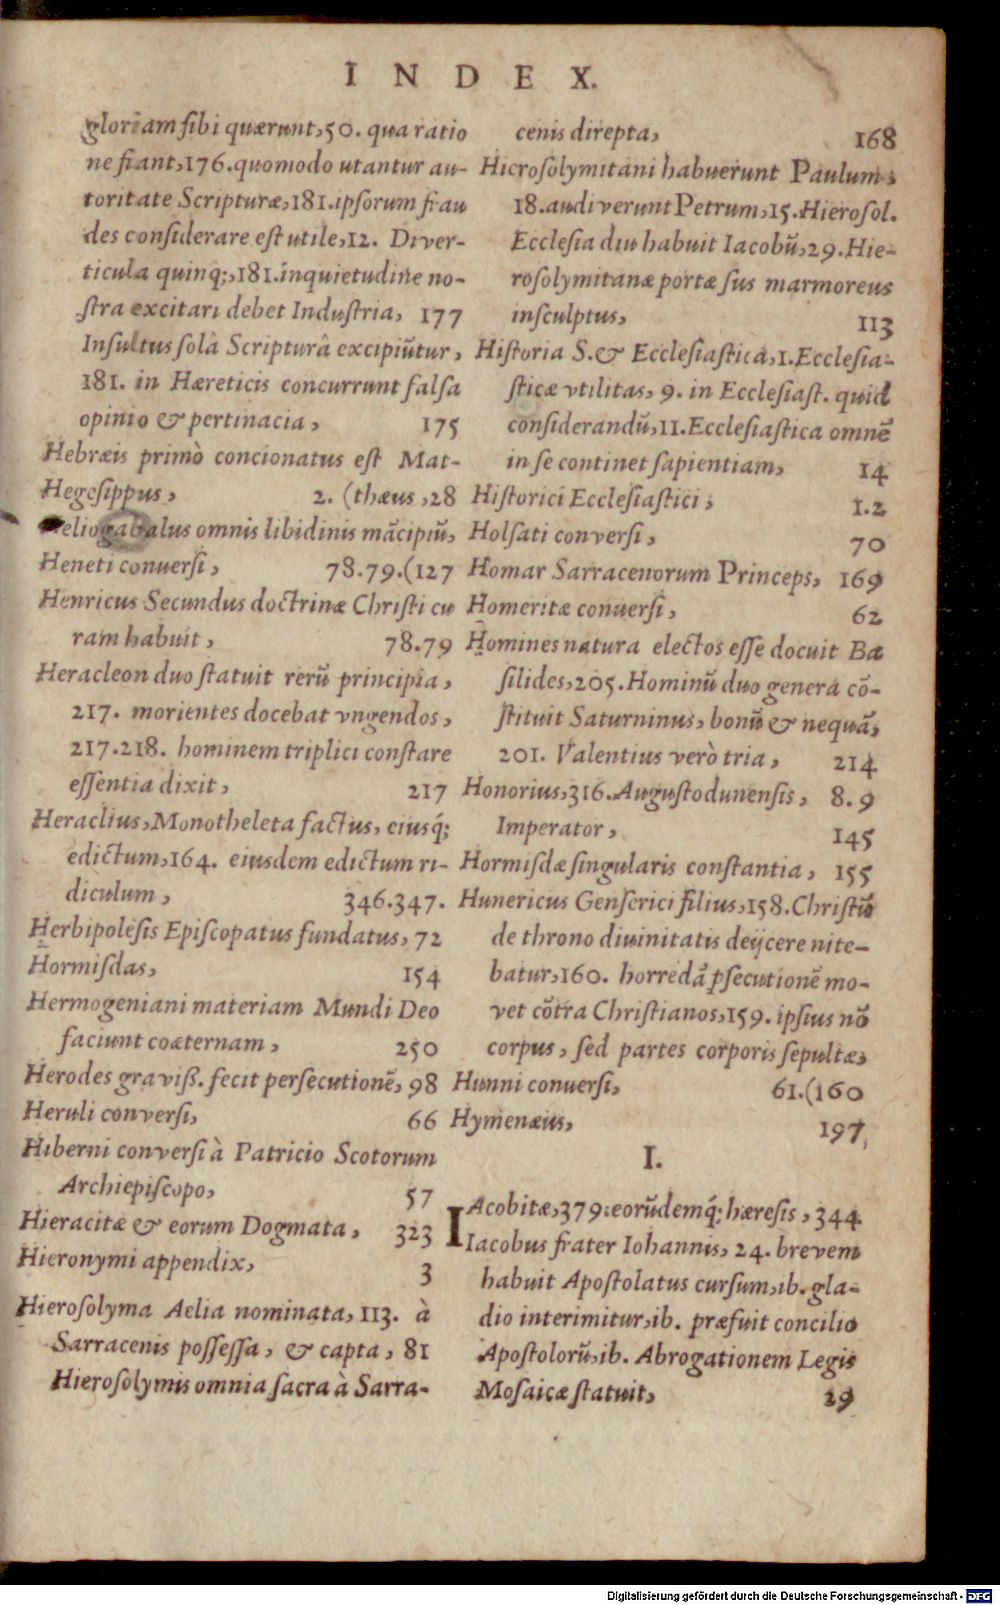 INDEX.
gloriam sibi quærunt, 50. qua ratio
ne fiant, 176. quomodo utantur au-
toritate Scripturæ, 181. ipsorum frau
des considerare est utile, 12. Diver-
ticula quinq;, 181. inquietudine no-
stra excitari debet Industria, 177
Insultus solâ Scripturâ excipiũtur,
181. in Hæreticis concurrunt falsa
opinio & pertinacia, 175
Hebræis primò concionatus est Mat-
Hegesippus, 2. (thæus, 28
Heliogabalus omnis libidinis mãcipiũ,
Heneti conversi, 78.79. (127
Henricus Secundus doctrinæ Christi cu
ram habuit, 78.79
Heracleon duo statuit rerũ principia,
217. morientes docebat vngendos,
217.218. hominem triplici constare
essentia dixit, 217
Heraclius, Monotheleta factus, eiusq́;
edictum, 164. eiusdem edictum ri-
diculum, 346.347.
Herbipolẽsis Episcopatus fundatus, 72
Hormisdas, 154
Hermogeniani materiam Mundi Deo
faciunt coæternam, 250
Herodes graviß. fecit persecutionẽ, 98
Heruli conversi, 66
Hiberni conversi à Patricio Scotorum
Archiepiscopo, 57
Hieracitæ & eorum Dogmata, 323
Hieronymi appendix, 3
Hierosolyma Aelia nominata, 113. à
Sarracenis possessa, & capta, 81
Hierosolymis omnia sacra à Sarra-
cenis direpta, 168
Hierosolymitani habuerunt Paulum,
18. audiverunt Petrum, 15. Hierosol.
Ecclesia diu habuit Iacobũ, 29. Hie-
rosolymitanæ portæ sus marmoreus
insculptus, 113
Historia S. & Ecclesiastica, 1. Ecclesia-
sticæ vtilitas, 9. in Ecclesiast. quid
considerandũ, 11. Ecclesiastica omnẽ
in se continet sapientiam, 14
Historici Ecclesiastici, 1.2
Holsati conversi, 70
Homar Sarracenorum Princeps, 169
Homeritæ conuersi, 62
Homines natura electos esse docuit Ba
silides, 205. Hominũ duo genera cõ-
stituit Saturninus, bonũ & nequã,
201. Valentius verò tria, 214
Honorius, 316. Augustodunensis, 8.9
Imperator, 145
Hormisdæ singularis constantia, 155
Hunericus Genserici filius, 158. Christũ
de throno divinitatis deijcere nite-
batur, 160. horredã ꝑsecutionẽ mo-
vet cõtra Christianos, 159. ipsius nõ
corpus, sed partes corporis sepultæ,
Hunni conversi, 61. (160
Hymenæus, 197
I.
IAcobitæ, 379. eorũdemq́; hæresis, 344
Iacobus frater Iohannis, 24. brevem
habuit Apostolatus cursum, ib. gla-
dio interimitur, ib. præfuit concilio
Apostolorũ, ib. Abrogationem Legis
Mosaicæ statuit, 29
Digitalisierung gefördert durch die Deutsche Forschungsgemeinschaft - DFG